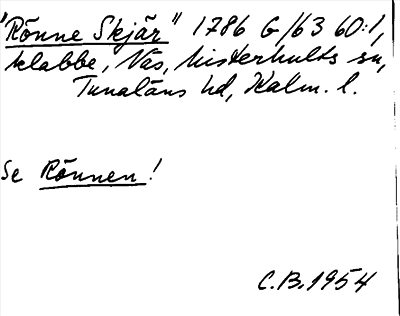 "Rönne Skjär" 1786 G/63 60:1,
klabbe, Vås, Misterhults sn,
Tunaläns hd, Kalm. l.
Se Rönnen!
C.B. 1954